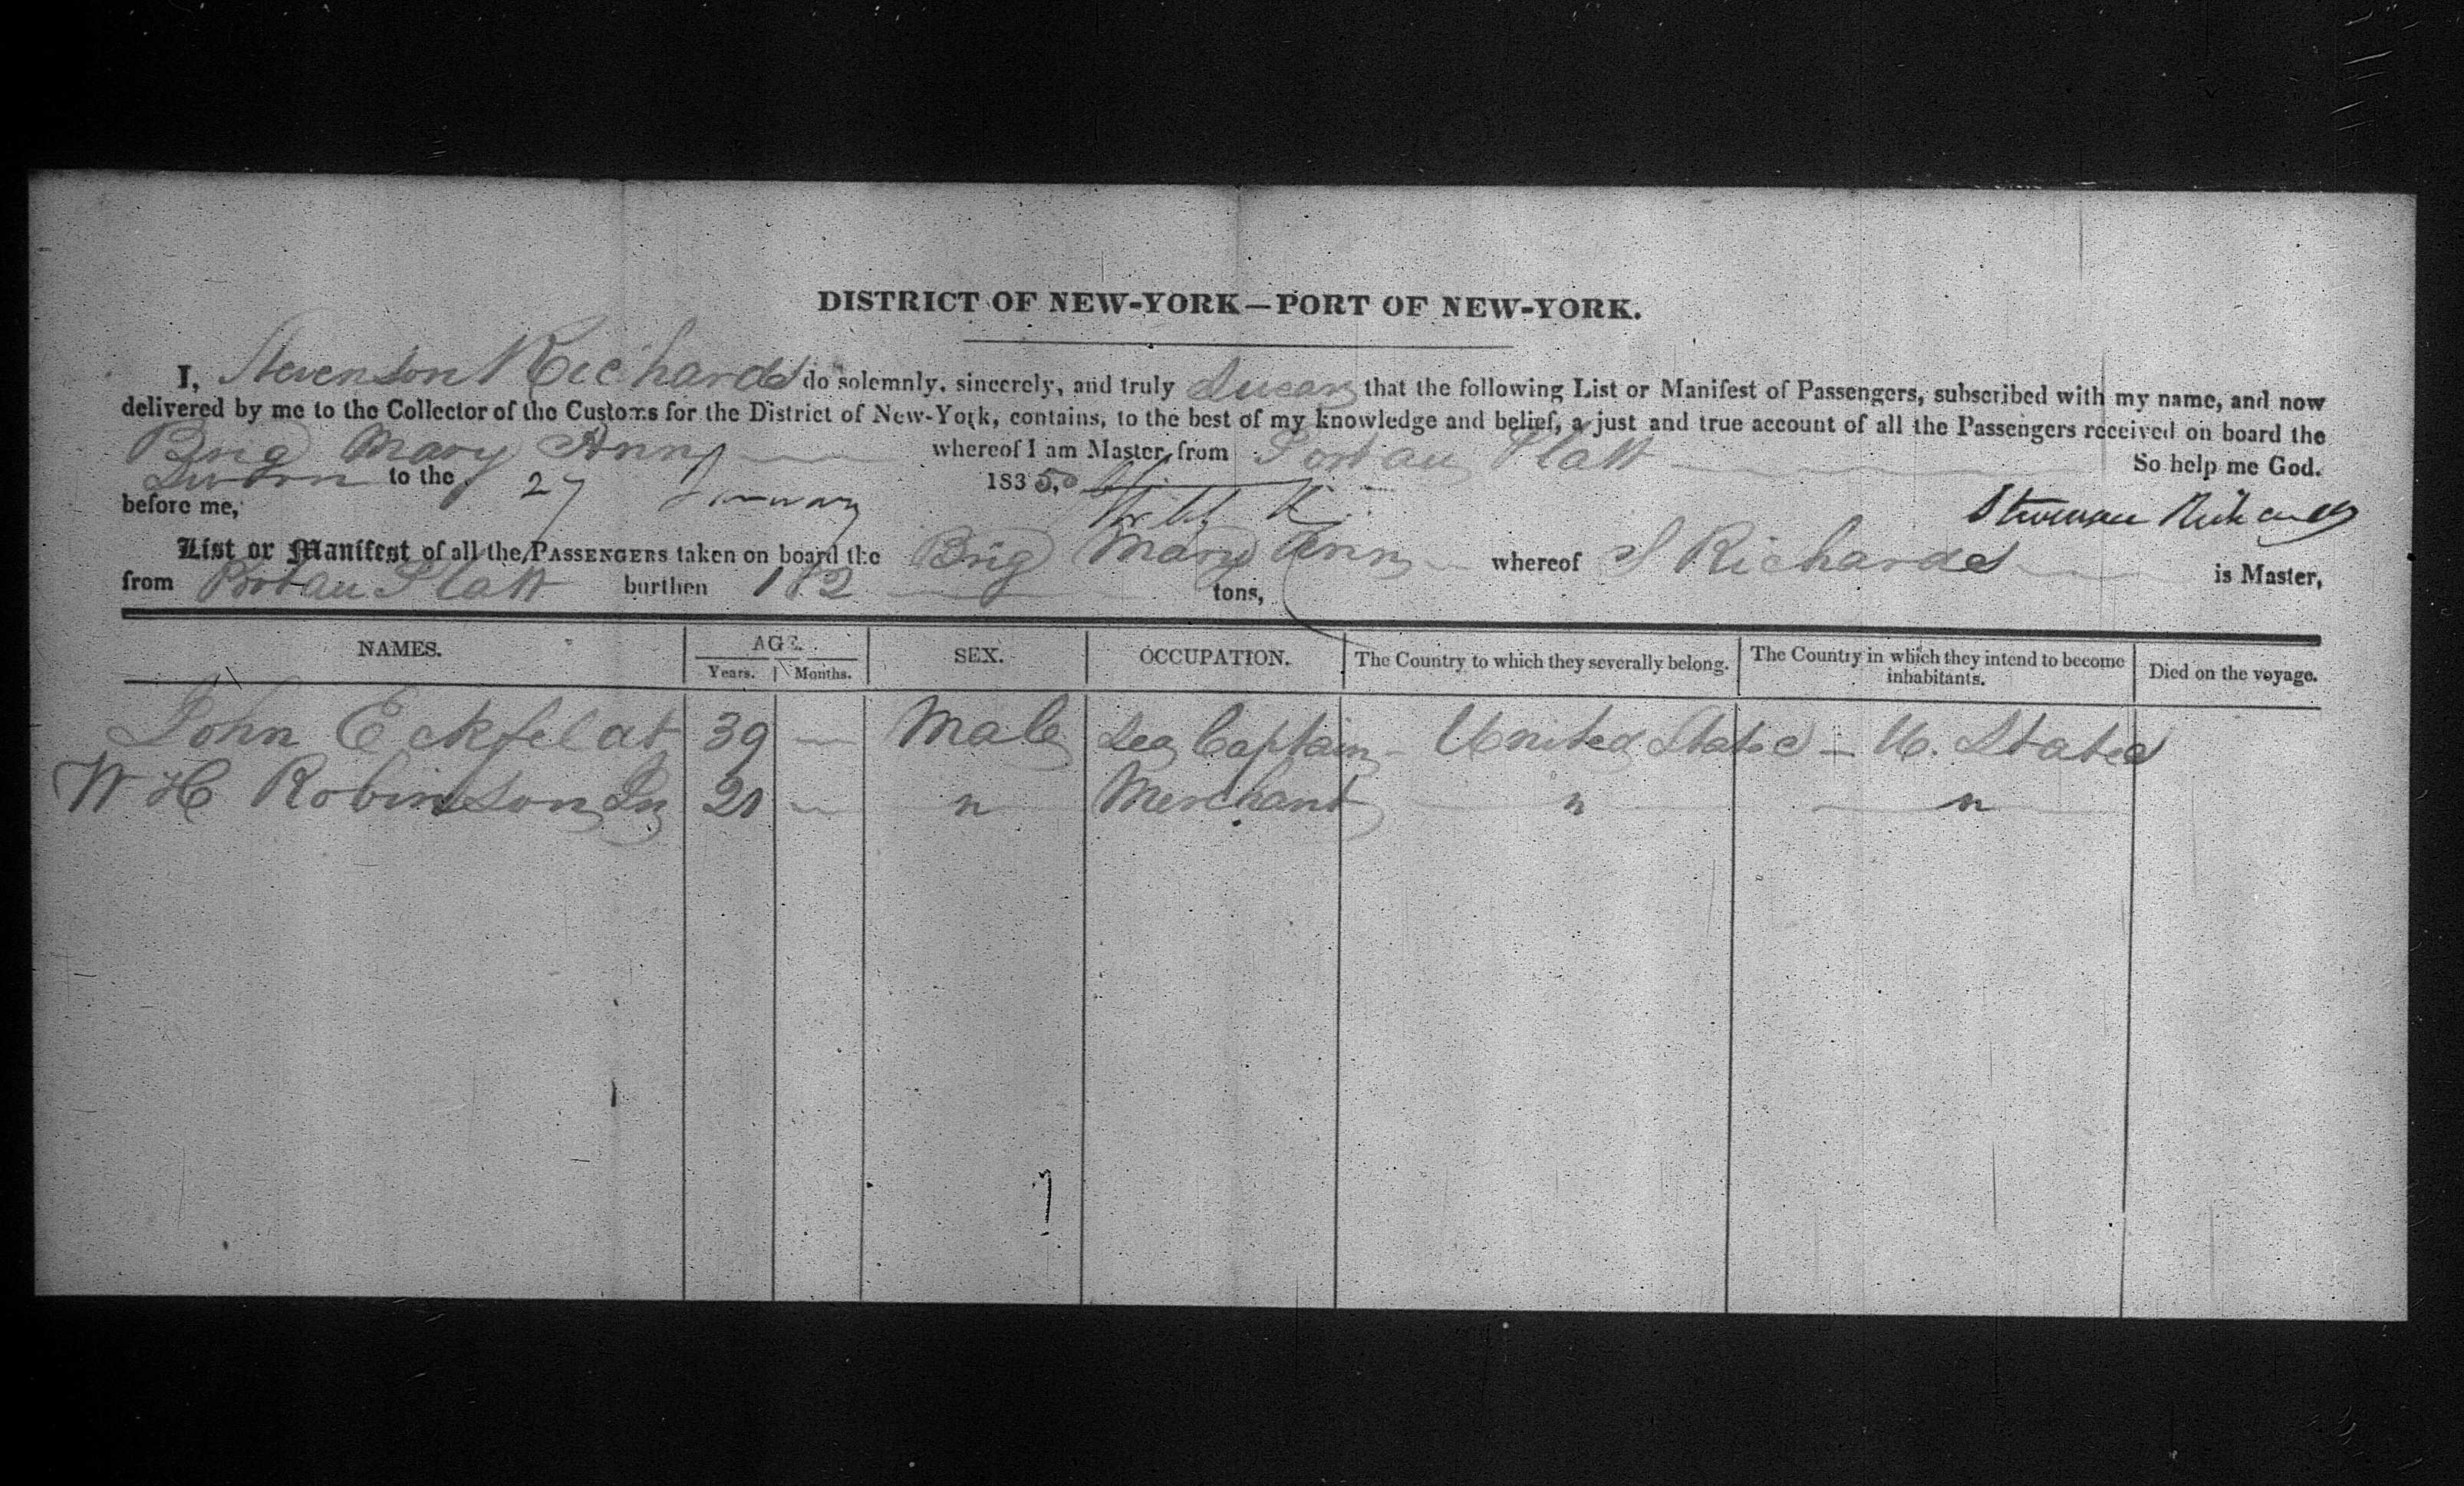 DISTRICT OF NEW-YORK—PORT OF NEW-YORK.
I, Stevenson Richards do solemnly, sincerely, and truly Swear that the following List or Manifest of Passengers, subscribed with my name, and now
delivered by me to the Collector of the Customs for the District of New-York, contains, to the best of my knowledge and belief, a just and true account of all the Passengers received on board the
Brig Mary Ann whereof I am Master, from Port au Platt So help me God.
Sworn to the 27 January 1835,
before me, Stevenson Richards
List or Manifest of all the PASSENGERS taken on board the Brig Mary Ann whereof S Richards is Master,
from Port au Platt burthen 182 tons,
NAMES. AGE. Years. Months. SEX. OCCUPATION. The Country to which they severally belong. The Country in which they intend to become inhabitants. Died on the voyage.
John Eckfeldt 39 — Male Sea Captain — United States — U. States
W H Robinson Jn 21 — " Merchant " "